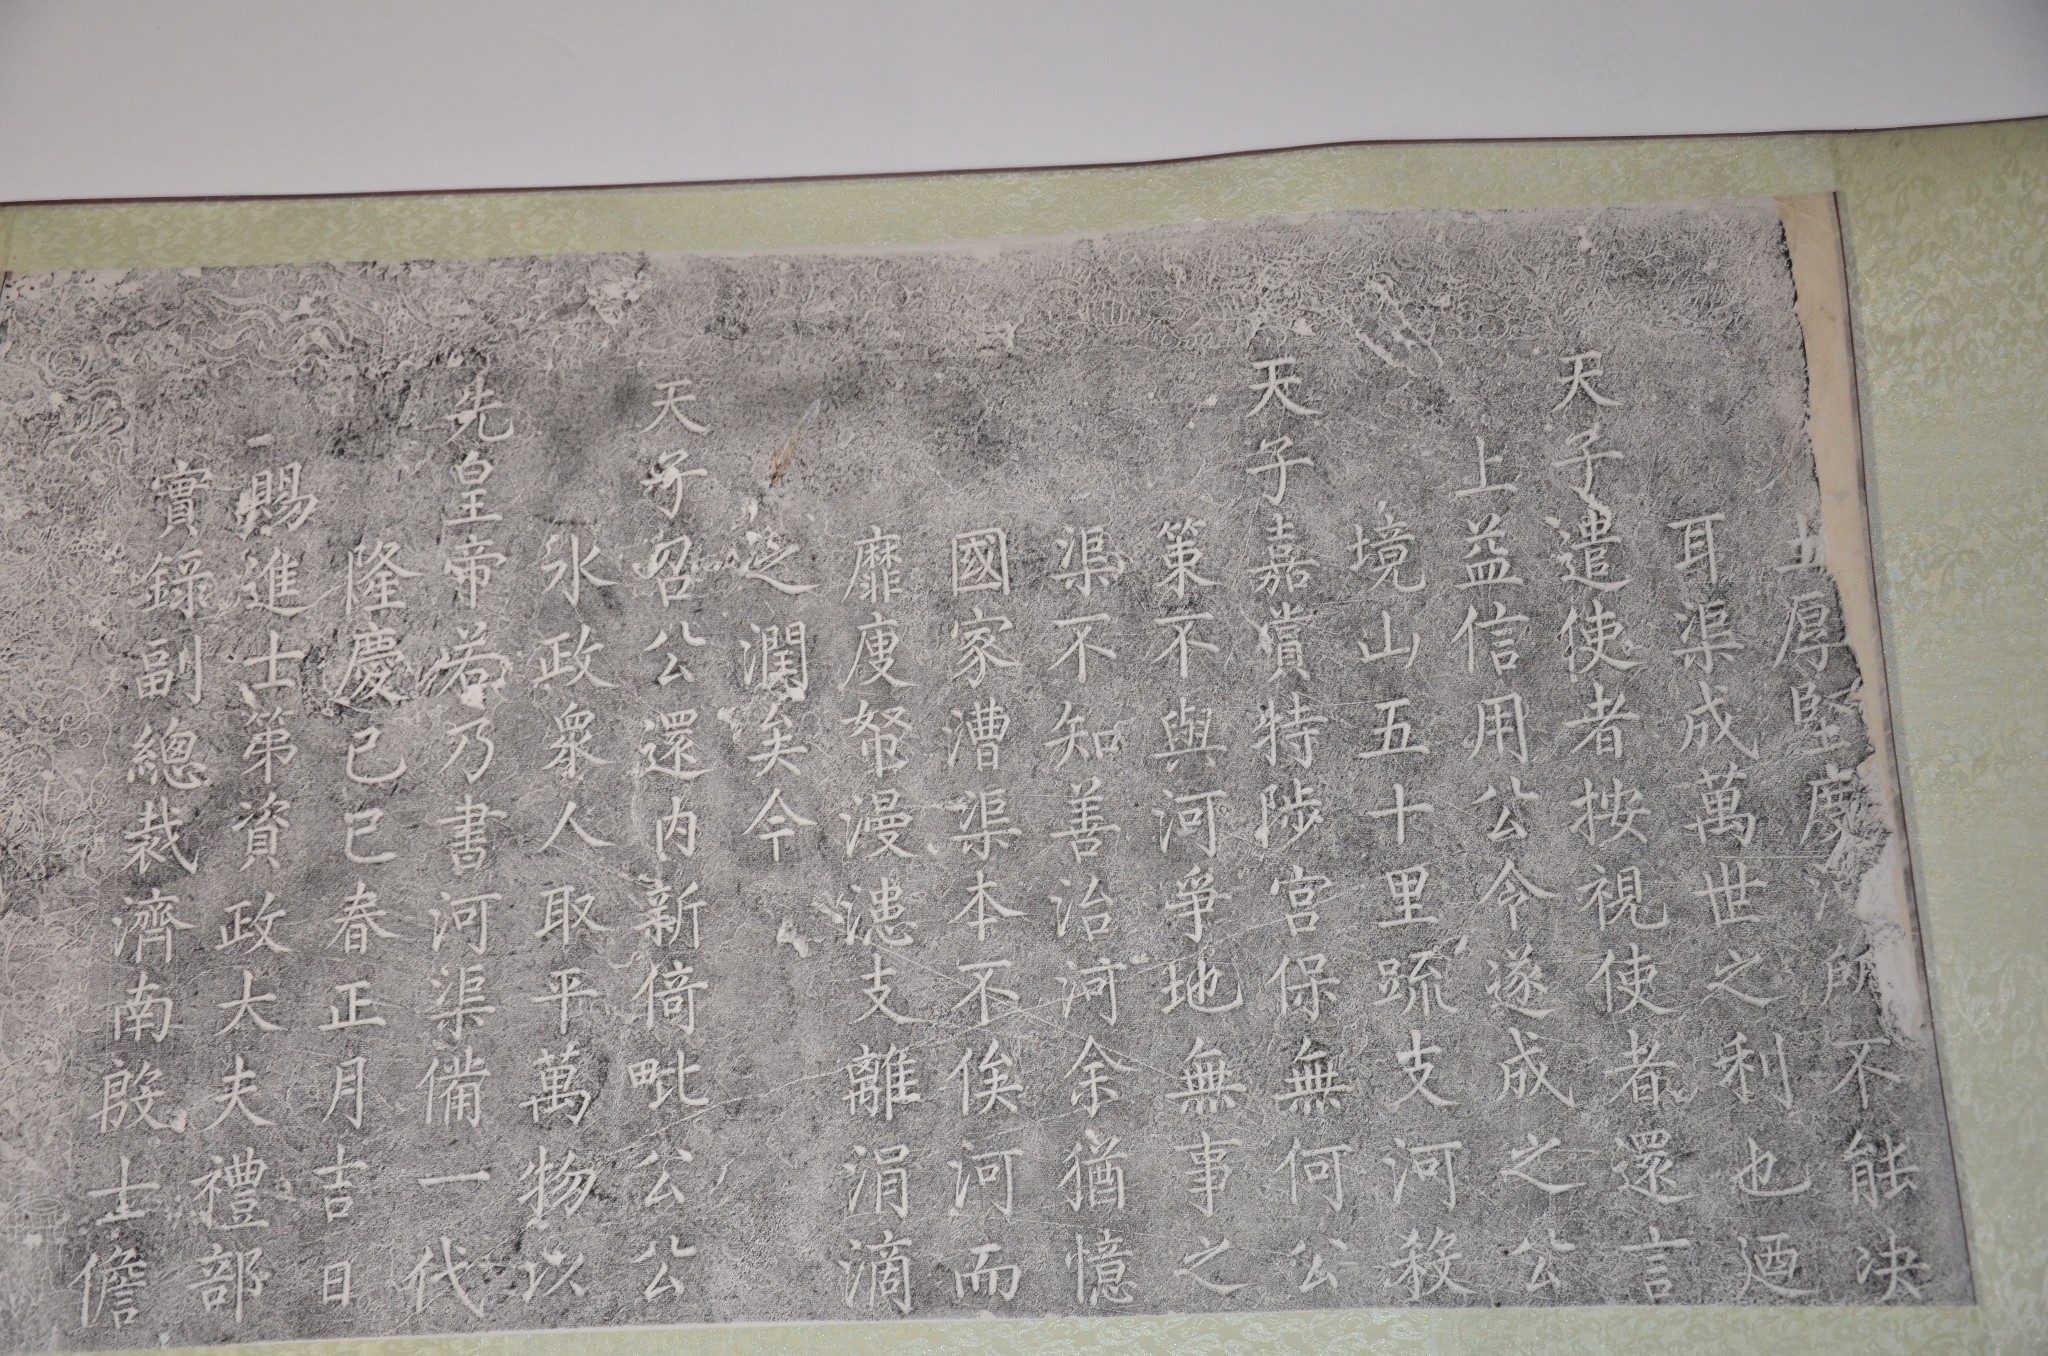 土厚堅度河所不能決
耳渠成萬世之利也迺
天子遣使者按視使者還言
上益信用公令遂成之公
境山五十里疏支河殺
天子嘉賞特陟宮保無何公
策不與河爭地無事之
渠不知善治河余猶憶
國家漕渠本不俟河而
靡庾帑漫漶支離涓滴
之潤矣今
天子召公還内新倚毗公公
氷政衆人取平萬物以
先皇帝若乃書河渠備一代
隆慶己巳春正月吉日
賜進士第資政大夫禮部
實錄副總裁濟南殷士儋